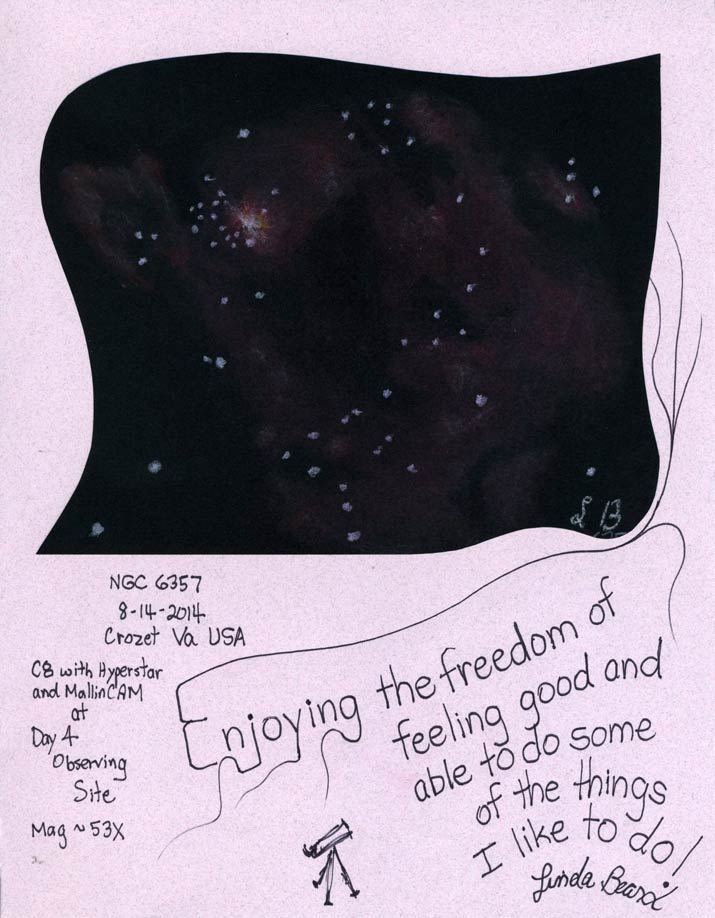 L B
NGC 6357
8-14-2014
Crozet Va USA
C8 with Hyperstar
and MallinCAM
at
Day 4
Observing
Site
Mag ~ 53X
Enjoying the freedom of
feeling good and
able to do some
of the things
I like to do!
Linda